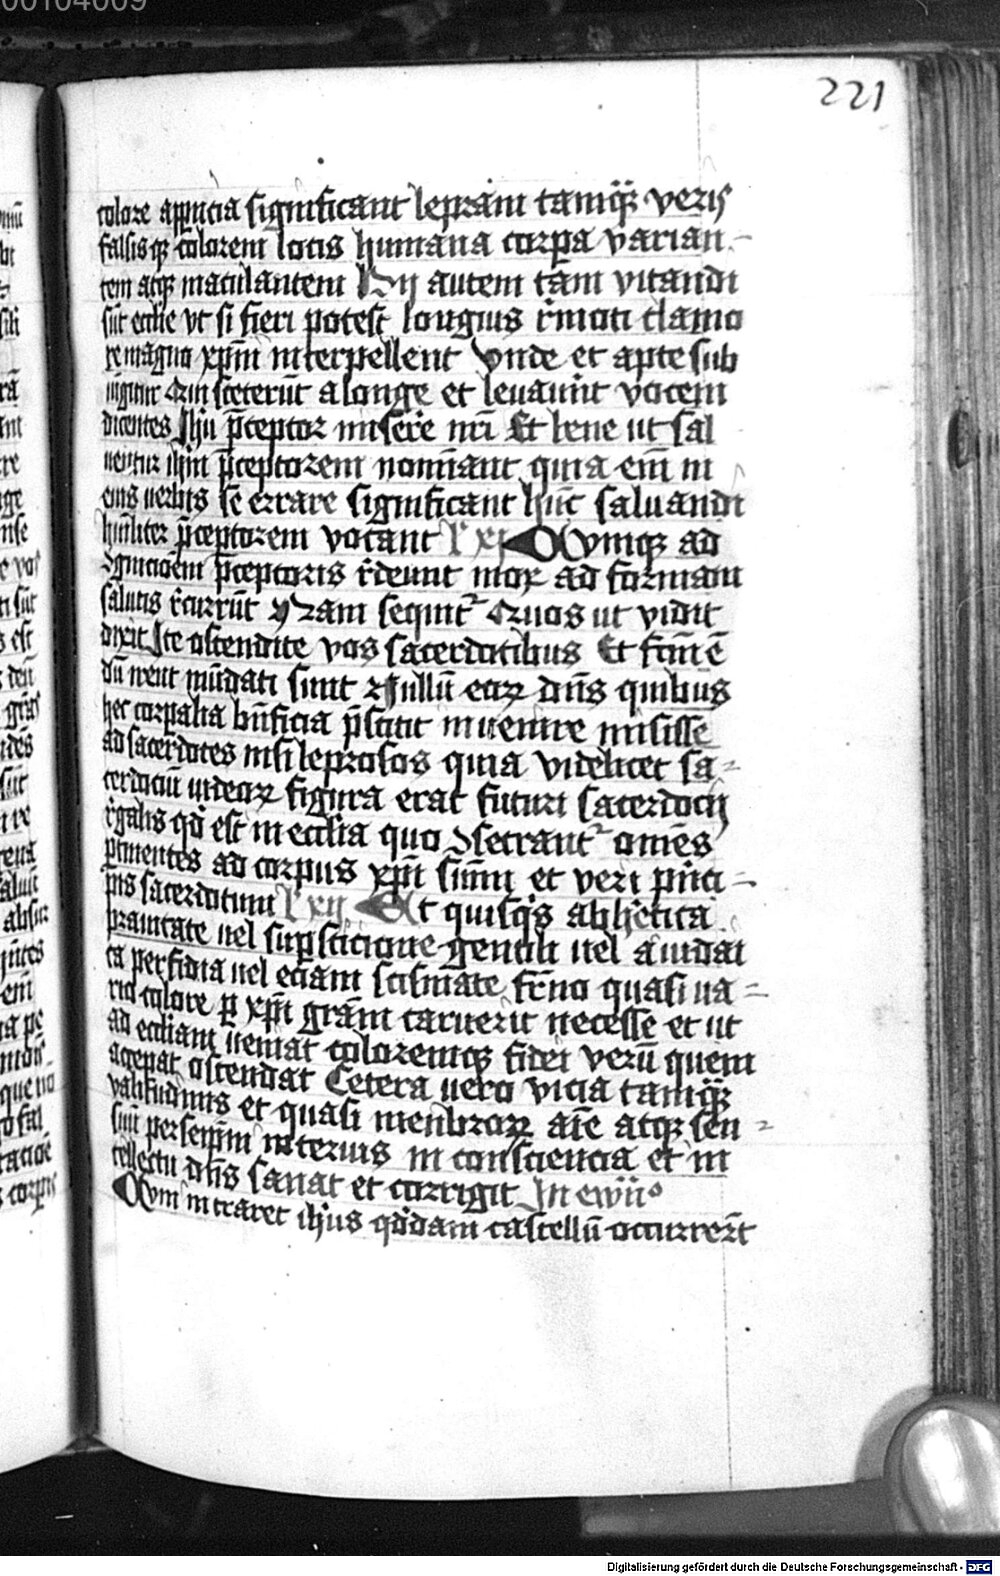 00104009
221
colore appīcia significant lepram tamq̄ꝫ veris
falsisqꝫ colorem locis humana corpa varian-
tem atqꝫ maculantem Hij autem tam vitandi
sūt ecclie vt si fieri potest longius r̄moti clamo
re magno xp̄m interpellent Vnde et apte sub
iūgitur Qui steterūt a longe et leuauūt vocem
dicentes Ihū p̄ceptor misere nr̄i Et bene ut sal
uentur ihm̄ p̄ceptorem nomīant quia em̄ in
eius uerbis se errare significant hūc saluandi
hūiliter p̄ceptorem vocant Lc̄ xi Cumqꝫ ad
ꝯgnicioem p̄ceptoris r̄deunt mox ad formam
salutis r̄currūt Nam sequit᷑ Quos ut vidit
dixit Ite ostendite vos sacerdotibus Et fcm̄ ē
dū irent mūdati sunt Nullū eoꝝ dn̄s quibus
hec corpalia bn̄ficia p̄stitit inuenire misisse
ad sacerdotes nisi leprosos quia videlicet sa-
cerdociū iudeoꝝ figura erat futuri sacerdocij
r̄galis qd̄ est in ecclia quo ꝯsecrant᷑ omēs
ptinentes ad corpus xp̄i sūmi et veri pnci-
pis sacerdotum Lc̄ xij Et quisqꝫ ab hetica
prauitate uel supsticione gentili uel a iudai
ca perfidia uel eciam scismate frn̄o quasi ua-
rio colore p xp̄i grām caruerit necesse et ut
ad eccliam ueniat coloremqꝫ fidei verū quem
accepat ostendat Cetera uero vicia tamq̄ꝫ
valitudinis et quasi menbroꝝ aīe atqꝫ sen-
suū per semp̄m interius in consciencia et in
tellectu dn̄s sanat et corrigit In ewūo
Cum intraret ihūs qd̄dam castellū occurrer̄t
Digitalisierung gefördert durch die Deutsche Forschungsgemeinschaft - DFG